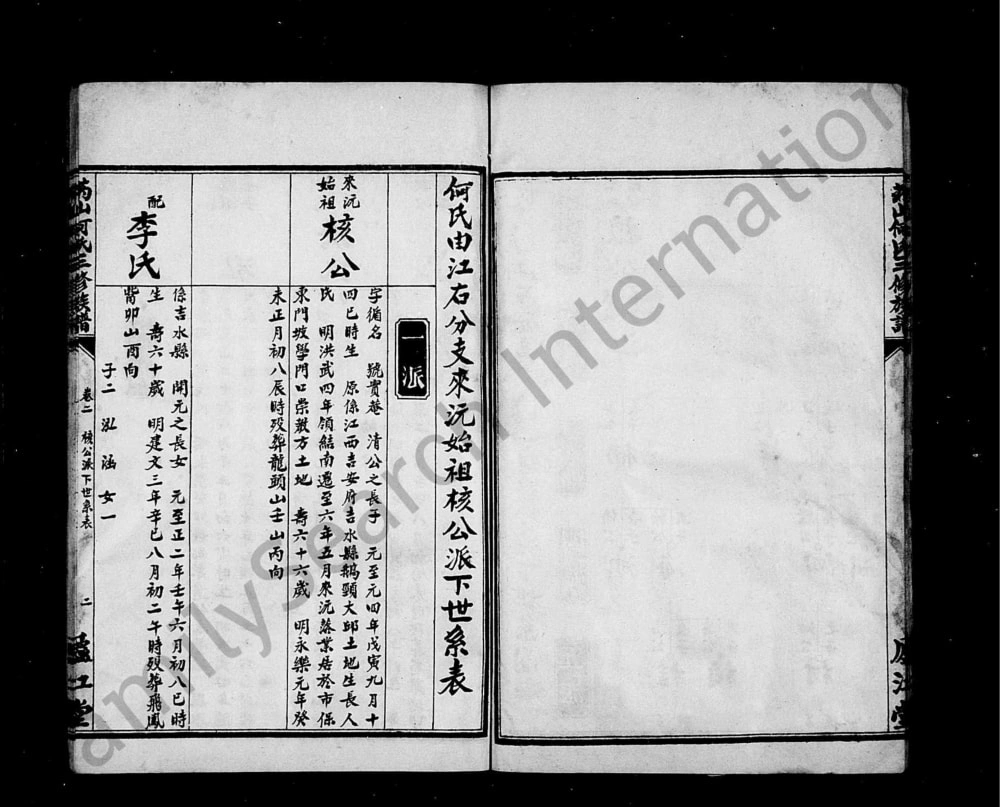 何氏由江右分支來沅始祖核公派下世系表
一派
來沅
始祖
核公
字循名 號實菴 清公之長子 元至元四年戊寅九月十
四巳時生 原係江西吉安府吉水縣鵝頸大邱土地生長人
氏 明洪武四年領結南遷至六年五月來沅落業居於市保
東門坡學門口崇教方土地 壽六十六歲 明永樂元年癸
未正月初八辰時歿葬龍頭山壬山丙向
配
李氏
係吉水縣 開元之長女 元至正二年壬午六月初八巳時
生 壽六十歲 明建文三年辛巳八月初二午時歿葬飛鳳
背卯山酉向
子二 泓 涵 女一
山何氏三修族譜
卷二 核公派下世系表
二
江堂
familysearch International